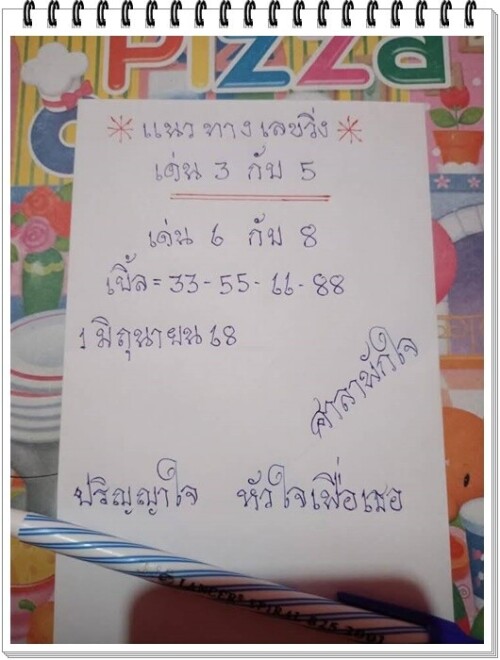 PIZZa
* แนวทางเลขวิ่ง *
เด่น 3 กับ 5
เด่น 6 กับ 8
เบิ้ล = 33 - 55 - 66 - 88
1 มิถุนายน 68
ศาลาพักใจ
ปริญญาใจ หัวใจเพื่อเธอ
LANCER SPIRAL 825 2001